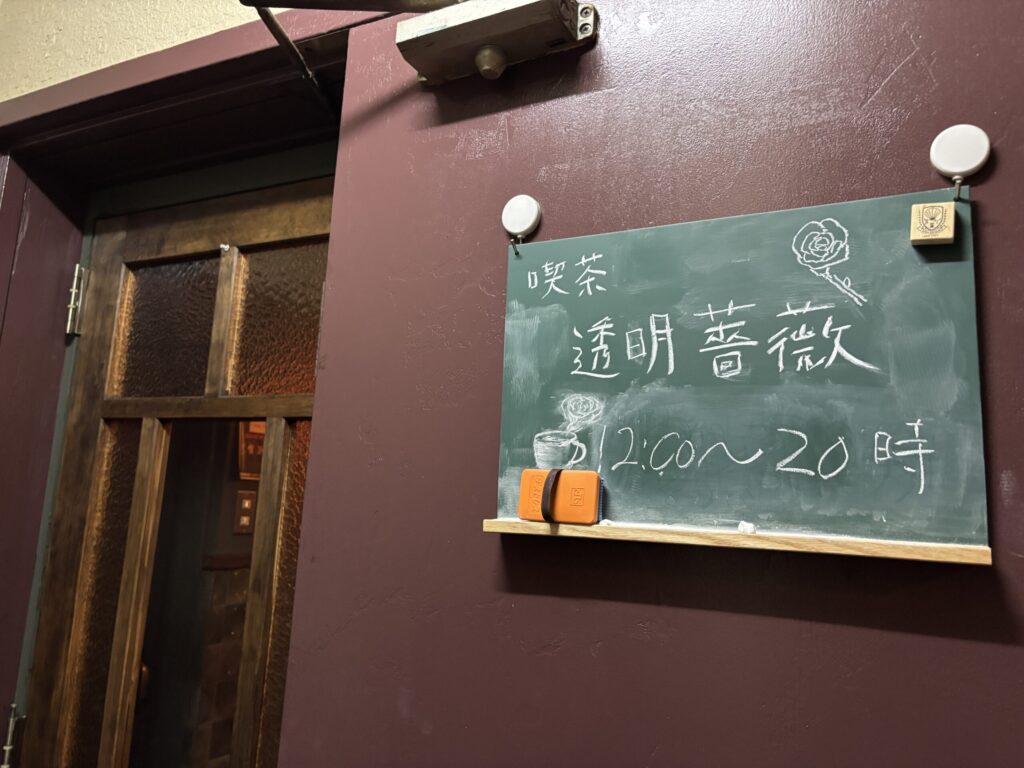 喫茶
透明薔薇
12:00〜20時